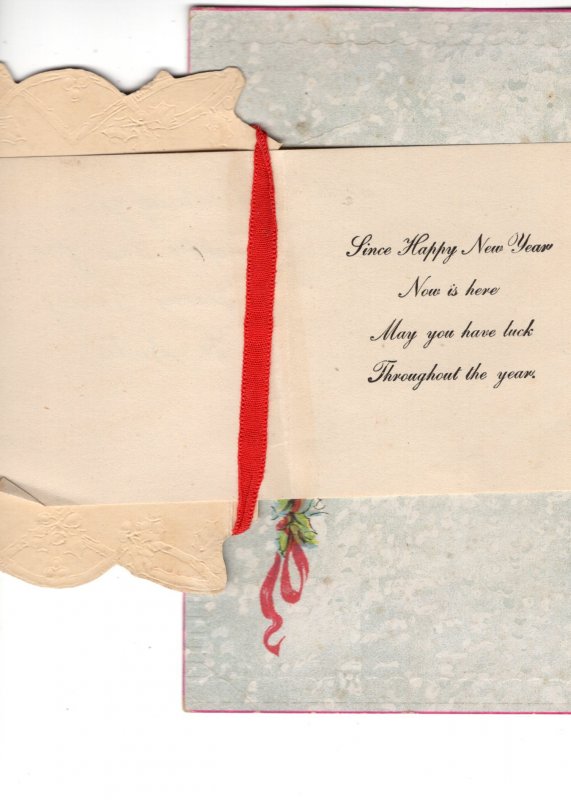 Since Happy New Year
Now is here
May you have luck
Throughout the year.